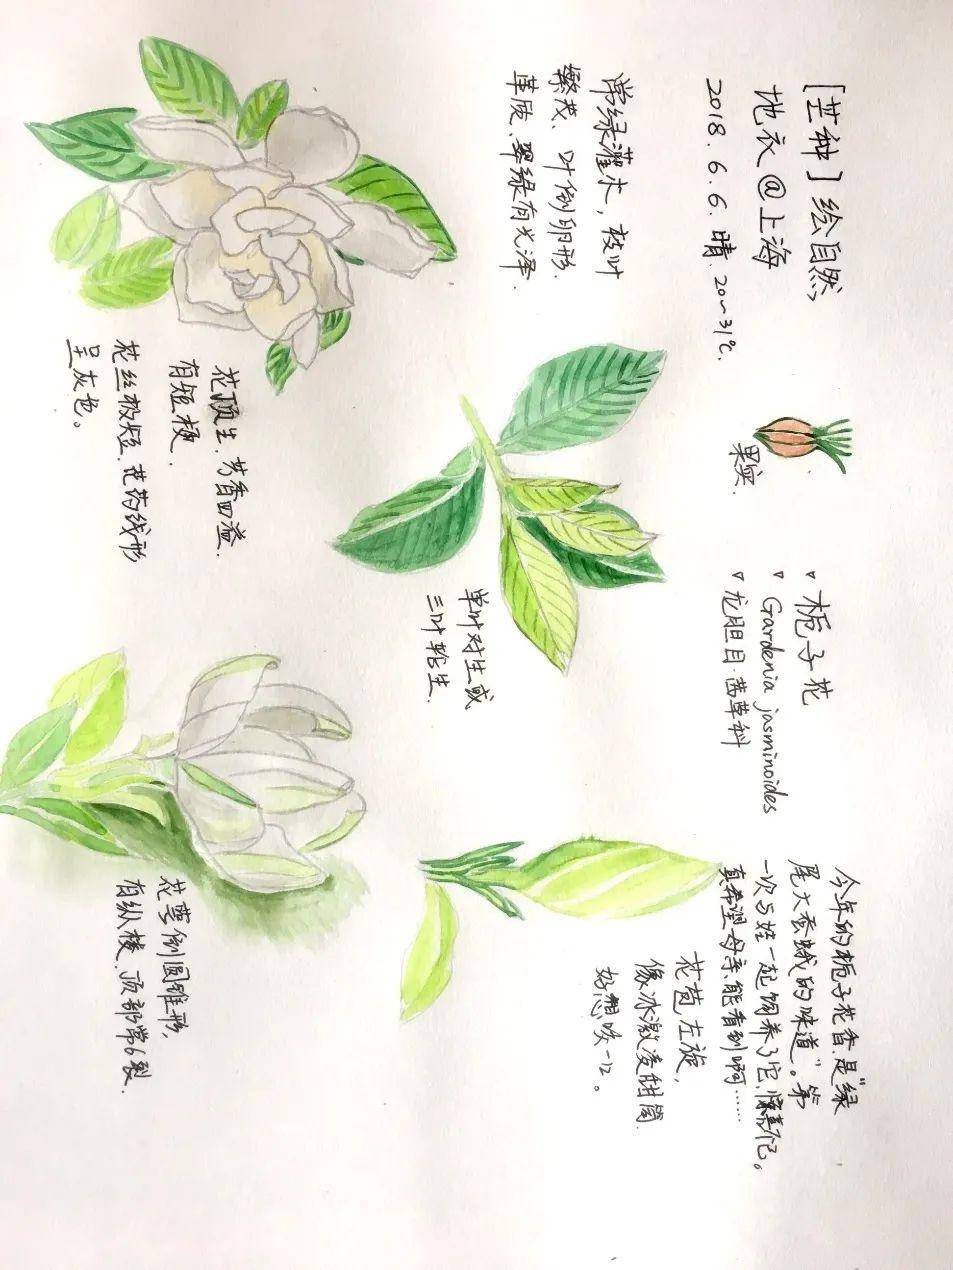 [芒种] 绘自然
地衣@上海
2018.6.6.晴.20~31℃.
常绿灌木，枝叶
繁茂、叶倒卵形.
革质、翠绿有光泽.
果实.
▼栀子花
▼Gardenia jasminoides
▼龙胆目.茜草科
花顶生.芳香四溢.
有短梗.
花丝极短.花药线形
呈灰色。
单叶对生或
三叶轮生.
今年的栀子花香是“绿
尾大蚕蛾的味道”。第
一次与娃一起饲养了它,惊喜。
真希望母亲能看到啊……
花苞左旋,
像冰激凌甜筒.
好想咬一口。
花萼倒圆锥形,
有纵棱.顶部常6裂.